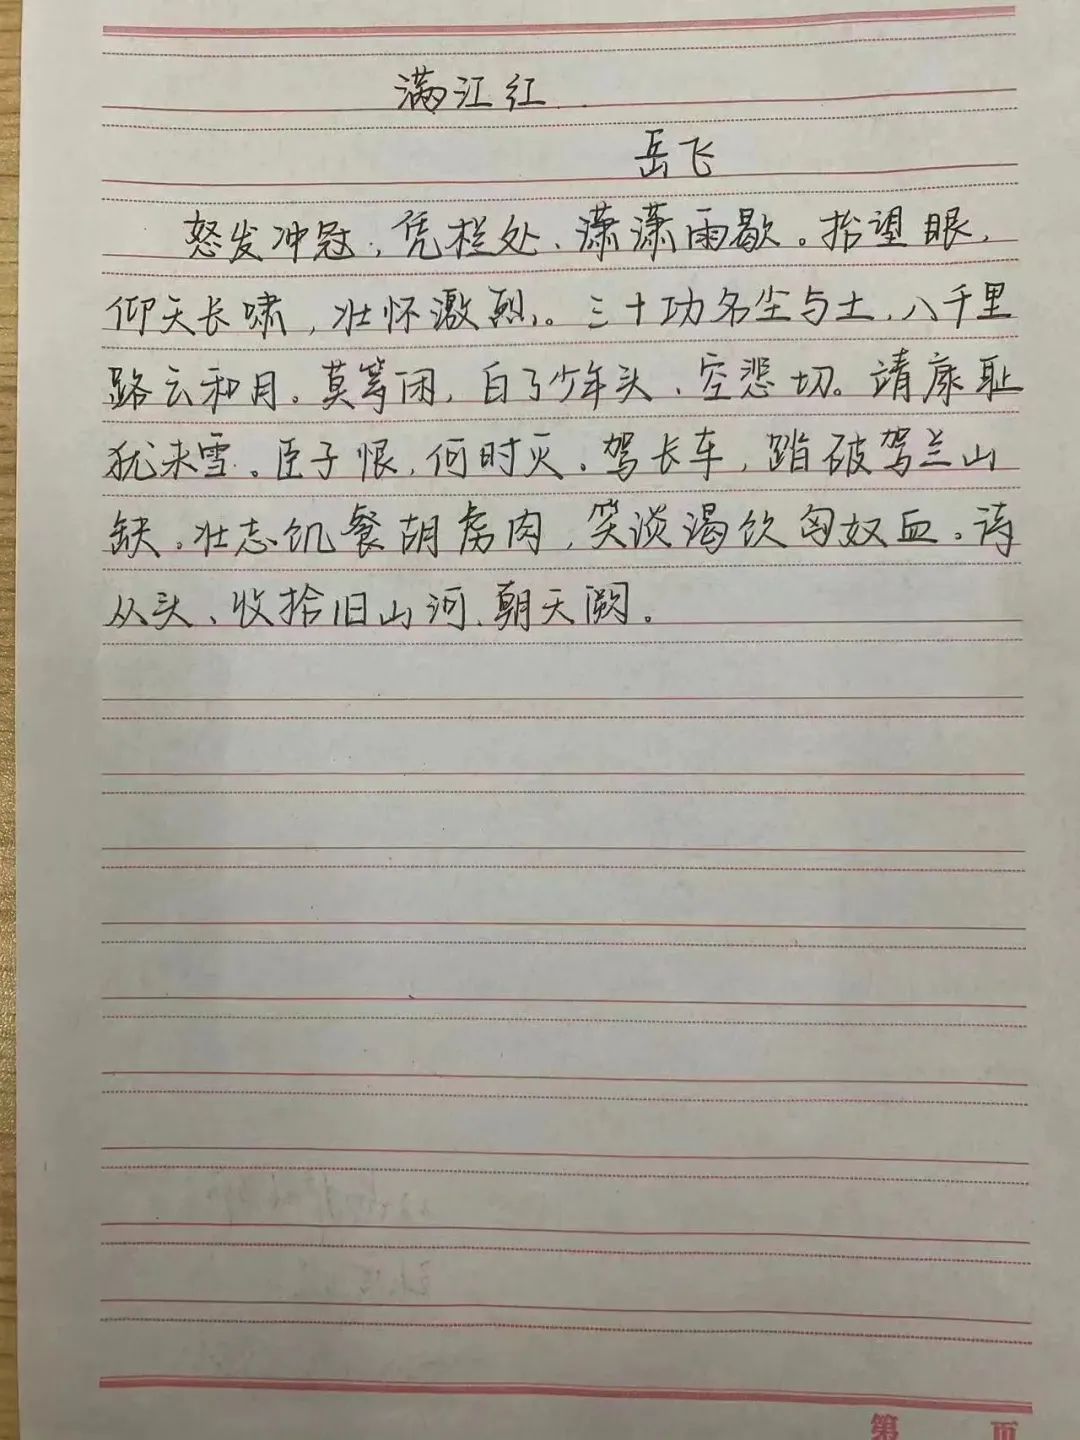 满江红
岳飞
怒发冲冠,凭栏处、潇潇雨歇。抬望眼,
仰天长啸,壮怀激烈。三十功名尘与土,八千里
路云和月。莫等闲,白了少年头、空悲切。靖康耻
犹未雪。臣子恨,何时灭。驾长车,踏破驾兰山
缺。壮志饥餐胡虏肉,笑谈渴饮匈奴血。待
从头、收拾旧山河、朝天阙。
第 页